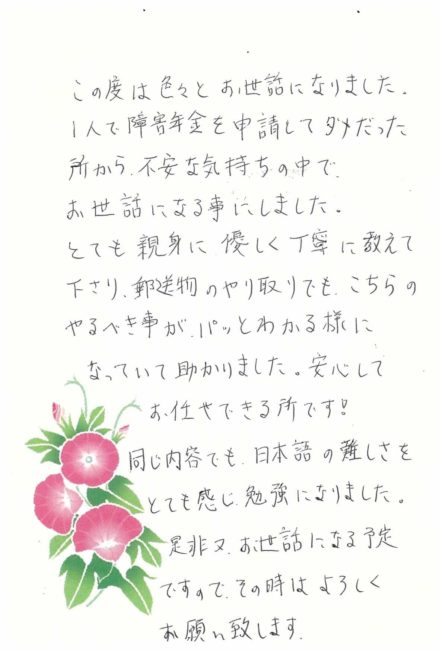 この度は色々と お世話になりました.
1人で障害年金を申請して ダメだった
所から、不安な気持ちの中で、
お世話になる事にしました。
とても 親身に 優しく 丁寧に教えて
下さり、郵送物のやり取りでも、こちらの
やるべき事が、パッとわかる様に
なっていて助かりました。安心して
お任せできる所です!
同じ内容でも、日本語の難しさを
とても感じ、勉強になりました。
是非又、お世話になる予定
ですので、その時は よろしく
お願い致します.